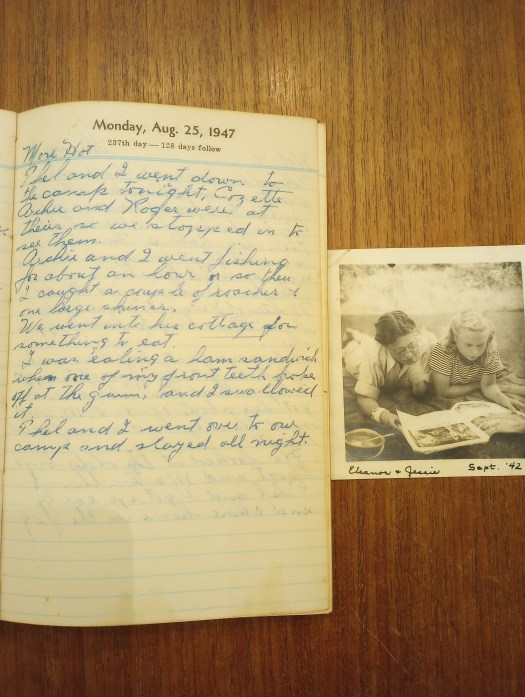 Monday, Aug. 25, 1947
237th day — 128 days follow
More Hot
Phel and I went down to
the camp tonight, Cozette
Archie and Roger were at
theirs, so we stopped in to
see them.
Archie and I went fishing
for about an hour or so then
I caught a couple of roaches &
one large shiner.
We went into his cottage for
something to eat.
I was eating a ham sandwich
when one of my front teeth broke
off at the gum, and I swallowed
it.
Phel and I went over to our
camp and stayed all night.
Eleanor & Jessie Sept. '42